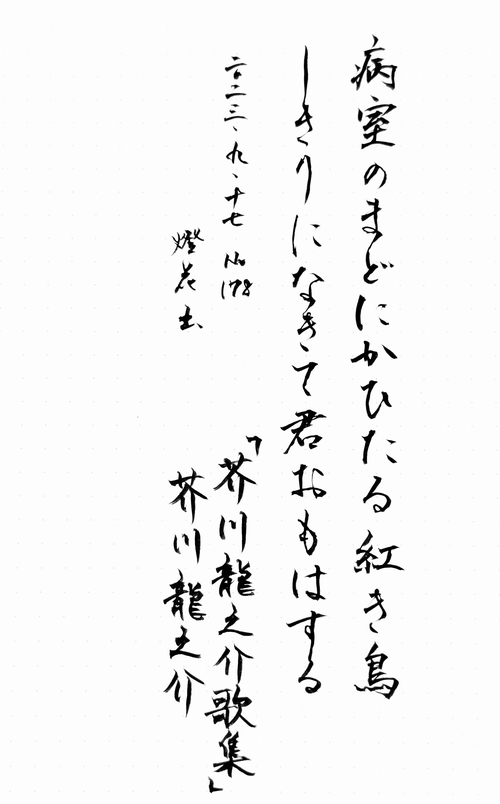 病室のまどにかひたる紅き鳥
しきりになきて君おもはする
「芥川龍之介歌集」
芥川龍之介
二〇二三、九、十七 No178
燈花生